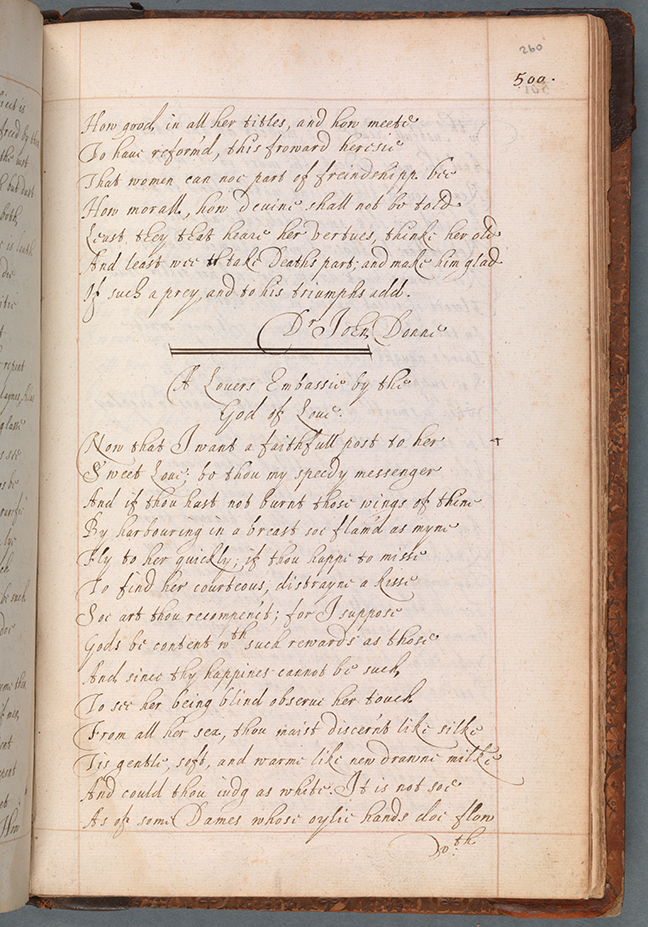 260
500.
How good, in all her titles, and how meete
To haue reformd, this froward heresie
That women can noe part of freindshipp bee
How morall, how devine shall not be told
Least they that heare her vertues, thinke her old
And least wee take Deaths part; and make him glad
Of such a prey, and to his triumphs add.
Dr John Donne
A Lovers Embassie by the
God of Loue.
Now that I want a faithfull post to her
Sweet Loue; be thou my speedy messenger
And if thou hast not burnt those wings of thine
By harbouring in a breast soe flam'd as myne
Fly to her quickly; if thou happe to misse
To find her courteous, distrayne a kisse
Soe art thou recompenc't; for I suppose
Gods be content wth such rewards as those
And since thy happines cannot be such,
To see her being blind observe her touch
From all her sex, thou maist discernt like silke
Tis gentle, soft, and warme like new drawne milke
And could thou iudg as white. It is not soe
As of some Dames whose oylie hands doe flow
wth